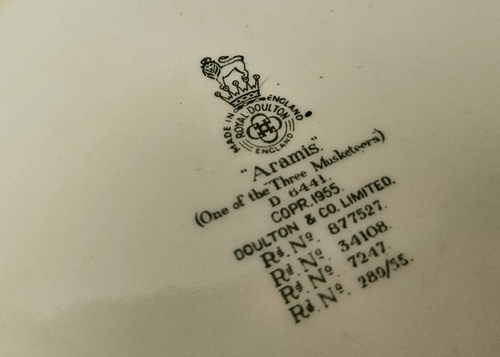 MADE IN ENGLAND
ROYAL DOULTON
ENGLAND
"Aramis"
(One of the "Three Musketeers)
D 6441.
COPR. 1955.
DOULTON & CO. LIMITED.
Rd. No. 877527.
Rd. No. 34108.
Rd. No. 7247.
Rd. No. 280/55.